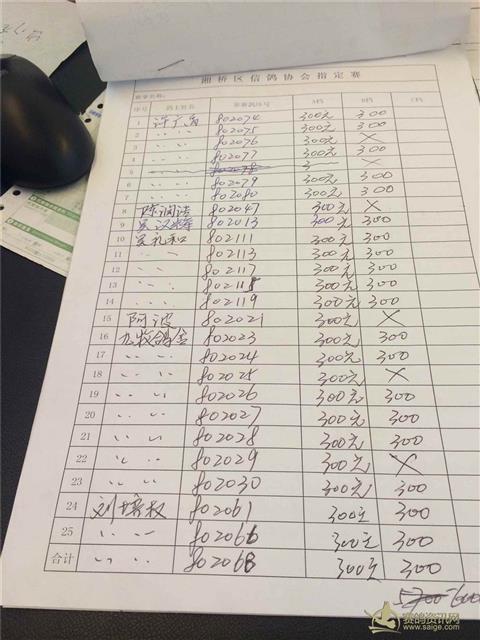 湘桥区信鸽协会指定赛
赛事名称:
序号 鸽主姓名 参赛鸽序号 A档 B档 C档
1 许广喜 802074 300元 300
2 〃 〃 802075 300元 300
3 〃 〃 802076 300元 ×
4 〃 〃 802077 300元 300
5 〃 〃 802078 3 ×
6 〃 〃 802079 300元 300
7 〃 〃 802080 300元 300
8 陈润洁 802047 300元 ×
9 吴汉辉 802013 300元 300
10 吴礼和 802111 300元 300
11 〃 〃 802113 300元 300
12 〃 〃 802117 300元 300
13 〃 〃 802118 300元 300
14 〃 〃 802119 300元 300
15 阿波 802021 300元 ×
16 九牧鸽舍 802023 300元 300
17 〃 〃 802024 300元 300
18 〃 〃 802025 300元 ×
19 〃 〃 802026 300元 300
20 〃 〃 802027 300元 300
21 〃 〃 802028 300元 300
22 〃 〃 802029 300元 ×
23 〃 〃 802030 300元 300
24 刘增权 802061 300元 300
25 〃 〃 802066 300元 300
合计 〃 〃 802068 300元 300
赛鸽资讯网
www.saige.com